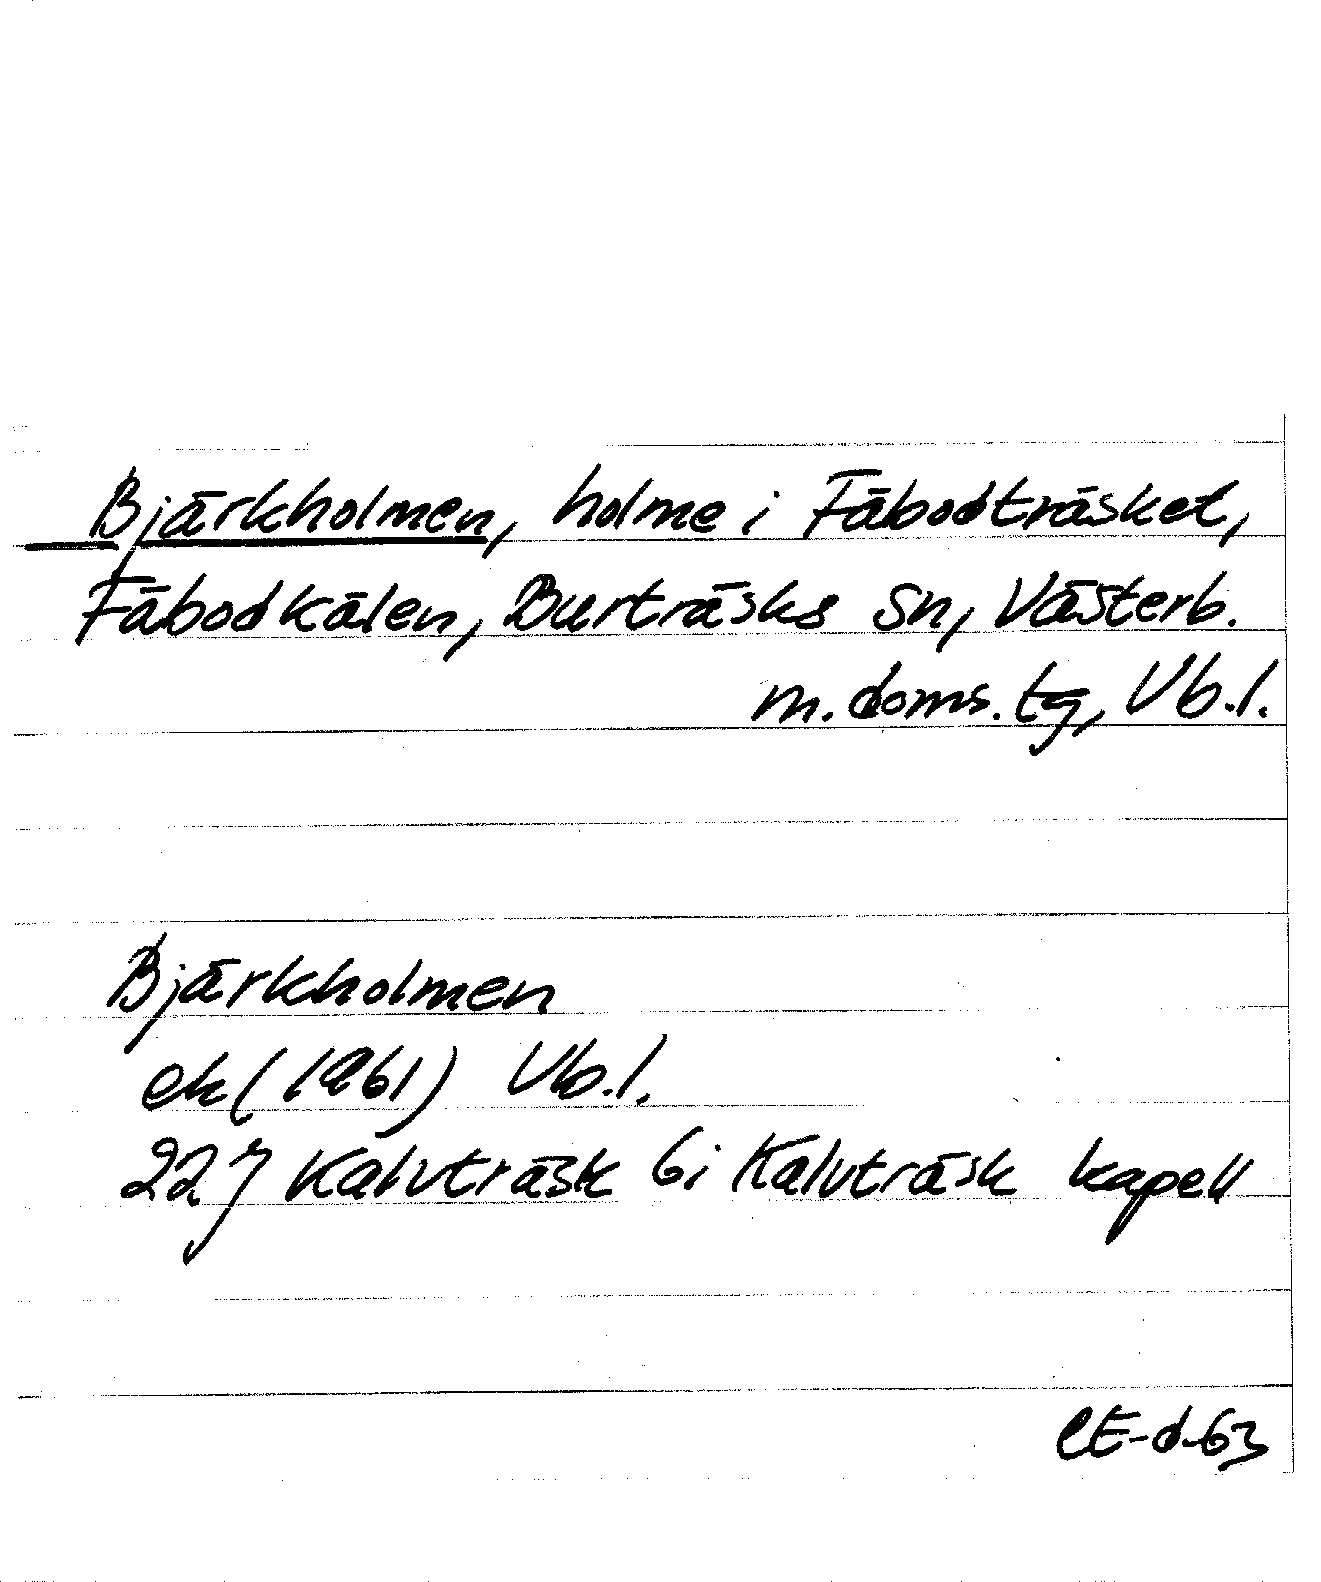 Bjärkholmen, holme i Fäbodträsket,
Fäbodkälen, Burträsks sn, Västerb.
m. doms. tg, Vb.l.
Bjärkholmen
ek (1961) Vb.l.
22J Kalvträsk 6i Kalvträsk kapell
CE-d-63